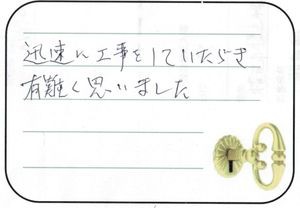 迅速に工事をしていただき
有難く思いました